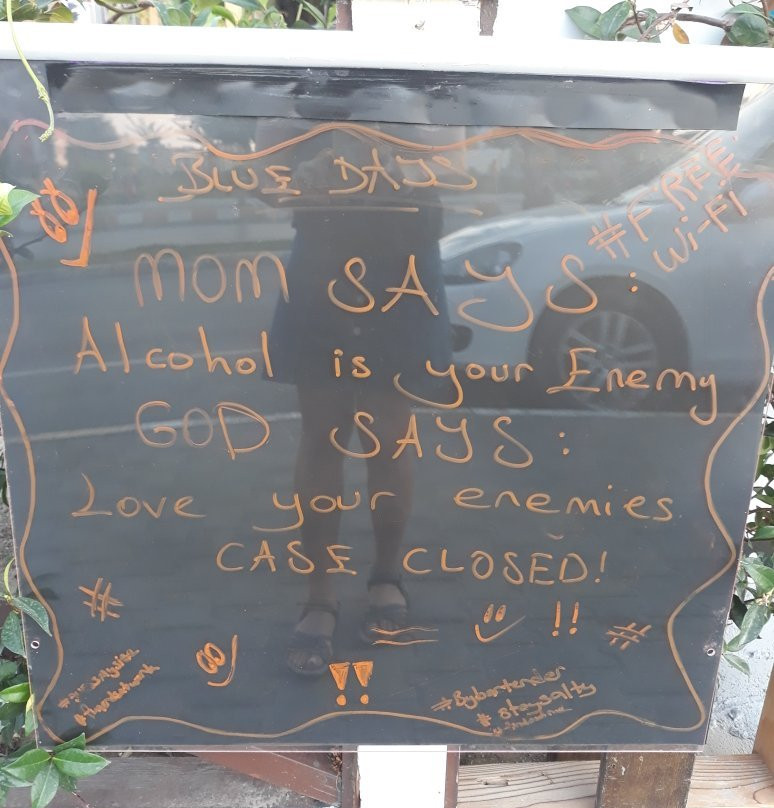 BLUE DAYS
#FREE
Wi-Fi
MOM SAYS:
Alcohol is your Enemy
GOD SAYS:
Love your enemies
CASE CLOSED!
!!
#
#
!!
#Bybartender
#Staysalty